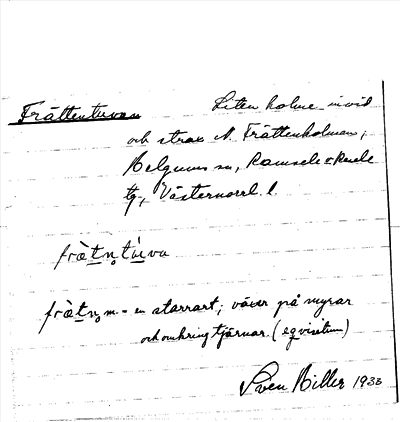 Frättentuvan Liten holme invid
och strax N. Frättenholmen,
Helgums sn, Ramsele o Resele
tg., Västernorrl. l.
fræ̀tn̥tùva
fræ̀tn̥ m. = en starrart, växer på myrar
och omkring tjärnar. (eqvisetum)
Sven Hiller 1933